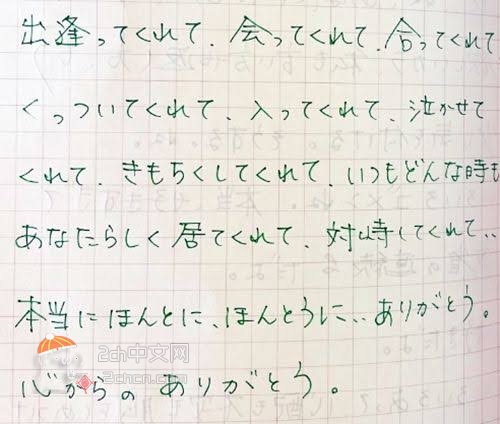 出逢ってくれて、会ってくれて、合ってくれて
くっついてくれて、入ってくれて、泣かせて
くれて、きもちくしてくれて、いつもどんな時も
あなたらしく居てくれて、対峙してくれて..
本当にほんとに、ほんとうに..ありがとう。
心からの ありがとう。
2ch中文网
2chcn.com